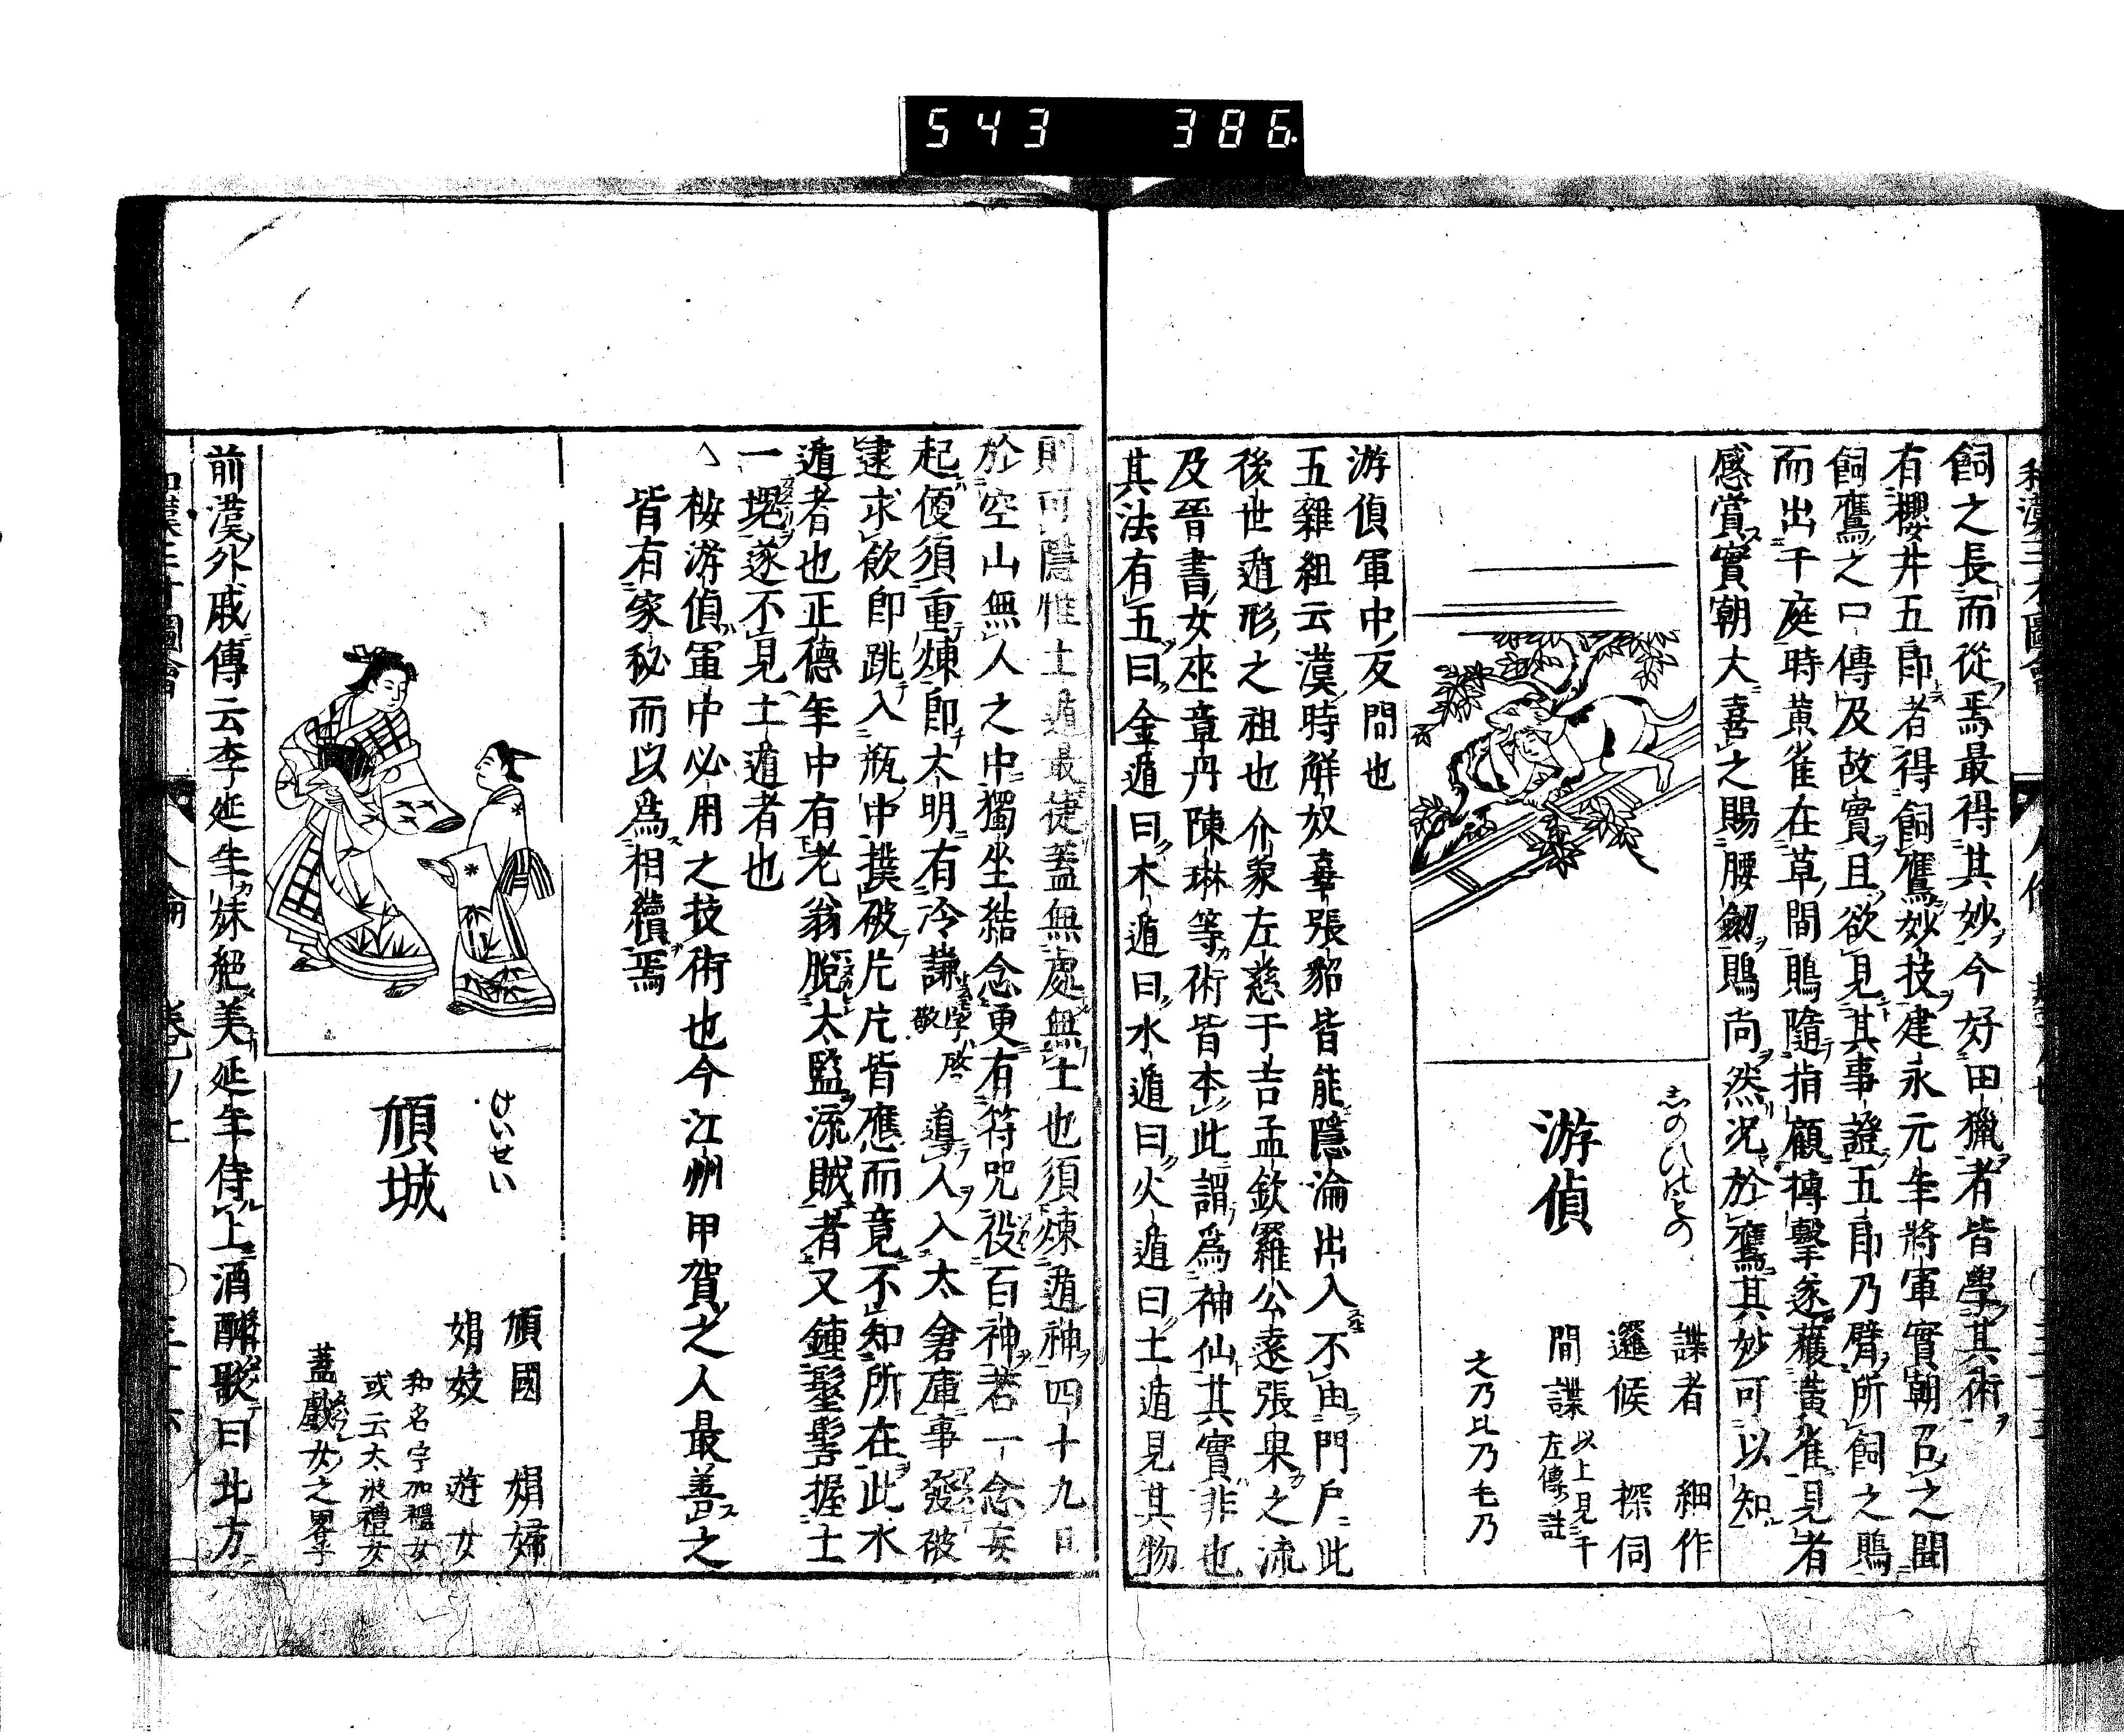 543 386
飼之長而從焉最得其妙今好田獵者皆學其術
有櫻井五郎者得飼鷹妙技建永元年將軍實朝召之聞
飼鷹之口傳及故實且欲見其事證五郎乃臂所飼之鵙
而出于庭時黄雀在草間鵙隨指顧搏擊遂獲黃雀見者
感賞實朝大喜之賜腰劒鵙尚然況於鷹其妙可以知
志のひのもの
游偵
諜者 細作
邏候 探伺
間諜 以上見于左傳註
游偵軍中反間也
五雜組云漢時解奴辜張貂皆能隱淪出入不由門戸此
後世遁形之祖也介象左慈于吉孟欽羅公遠張果之流
及晉書女巫章丹陳琳等術皆本此謂爲神仙其實非也
其法有五曰金遁曰木遁曰水遁曰火遁曰土遁見其物
則可隱惟土遁最捷蓋無處無土也須煉遁神四十九日
於空山無人之中獨坐結念更有符咒役百神若一念妄
起便須重煉即太明有冷謙字啓敬導人入太倉庫事發被
逮求飲即跳入瓶中撲破片片皆應而竟不知所在此水
遁者也正德年中有老翁脫太監流賊者又鍾髽髻握土
一塊遂不見土遁者也
△按游偵軍中必用之技術也今江州甲賀之人最善之
皆有家秘而以爲相續焉
けいせい
傾城
傾國 娼婦
娼妓 遊女
和名宇加禮女
或云太波禮女
蓋戲女之畧乎
前漢外戚傳云李延年妹絕美延年侍上酒酣歌曰北方